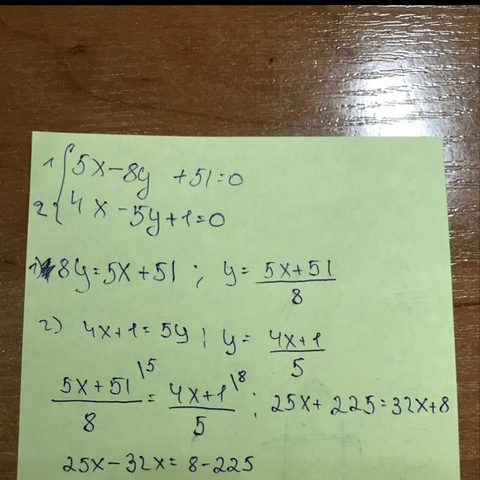 1) { 5x-8y +51=0
2) { 4x-5y+1=0
1) 8y=5x+51 ; y= (5x+51)/8
2) 4x+1=5y ; y= (4x+1)/5
(5x+51)/8 \5 = (4x+1)/5 \8 ; 25x+225=32x+8
25x-32x=8-225